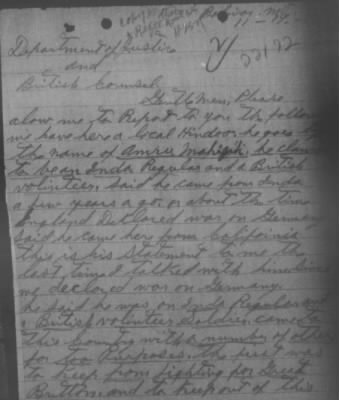 Department of Justice
and
British Counsel
Gentlemen, Please
alow me to Report to you the follow
me have here a local Hindoo. he goes by
the name of Amree he claims
to be an India Regular and a British
volunteer, said he came from India
a few years ago, or about the time
England Declared war on Germany
said he came here from California
this is his statement to me the
last time I talked with him since
we declared war on Germany.
he said he was an India Regular and
a British volunteer Soldier, came to
this Country with a number of others
for two Purposes. the first was
to keep from fighting for Great
Brittom and to keep out of this